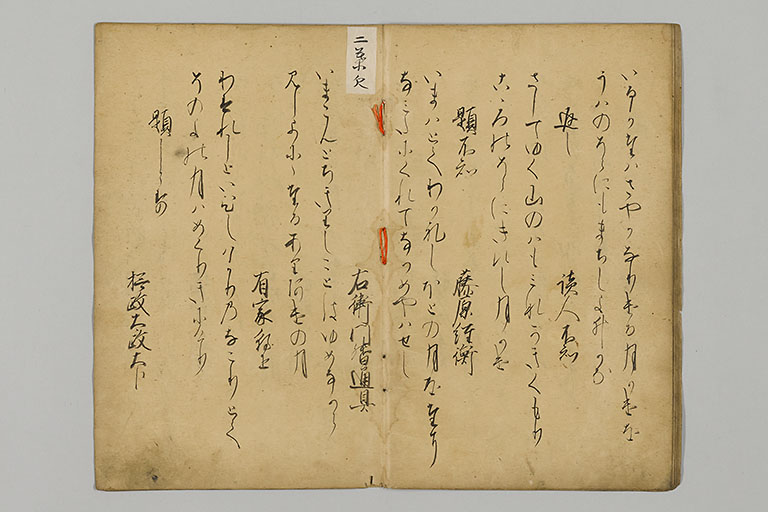 二葉欠
いるかたはさやかなりける月かけを
うはのそらにもまちしよひかな
返し　読人不知
さしてゆく山のはもみなかきくもり
こゝろのそらにきえし月かけ
題不知　藤原経衡
いまはとてわかれしほとの月をたに
なみたにくれてなかめやはせし
右衛門督通具
いまこんとちきりしことはゆめなから
みしよにゝたるありあけの月
有家朝臣
わすれしといひしはかりのなこりとて
そのよの月はめくりきにけり
題しらす
摂政太政大臣